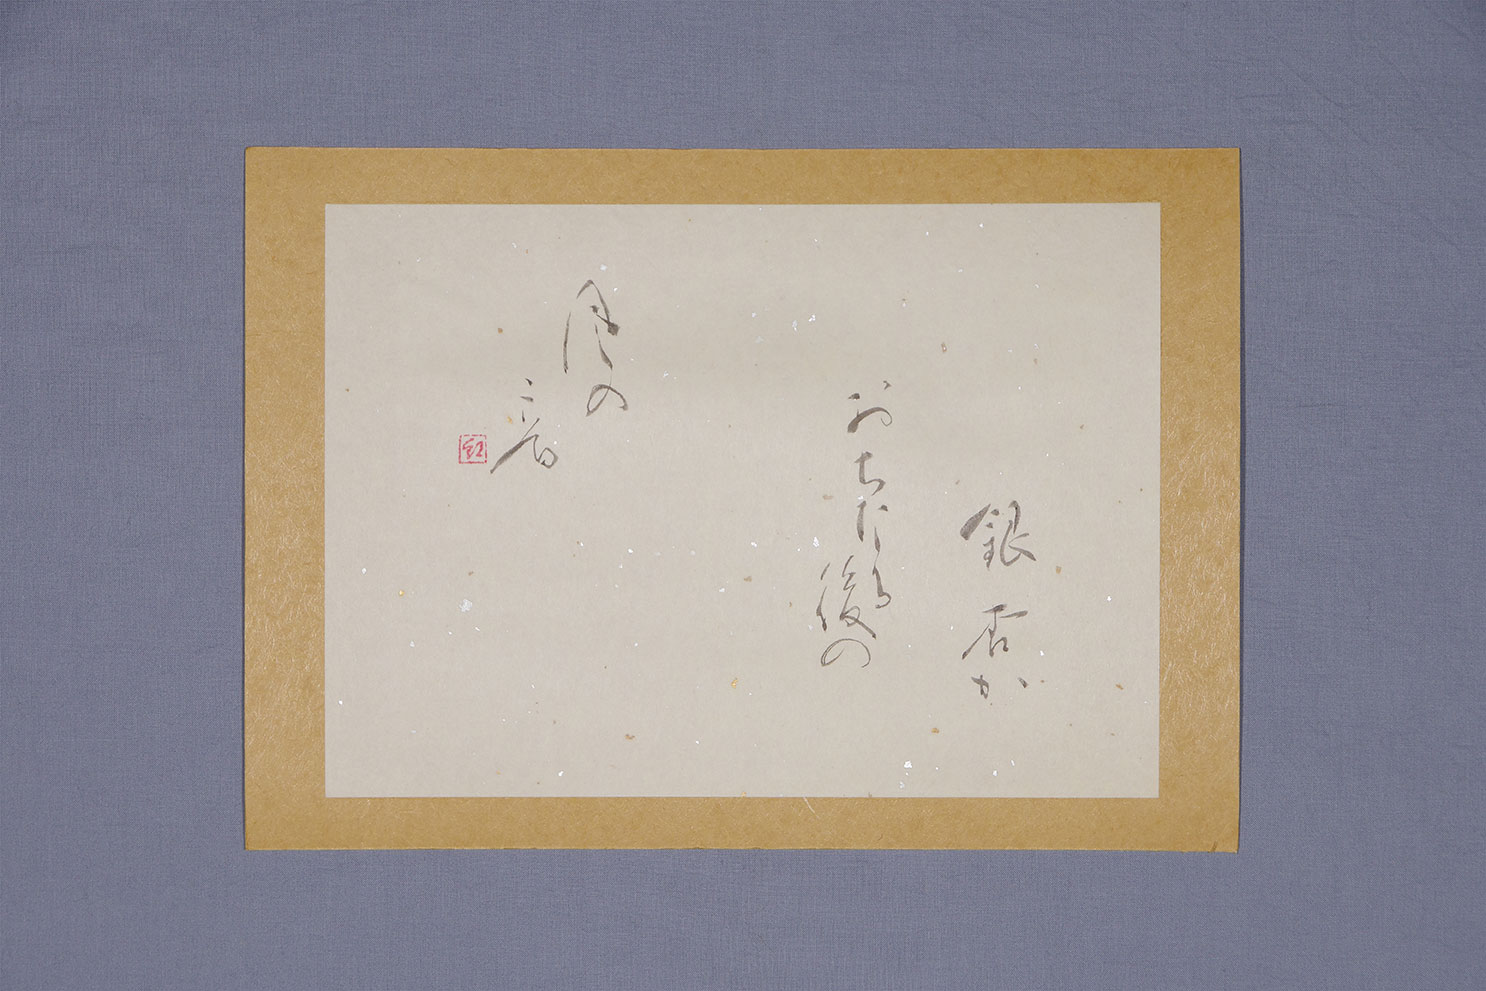 銀杏か
おちたる後の
風の
音